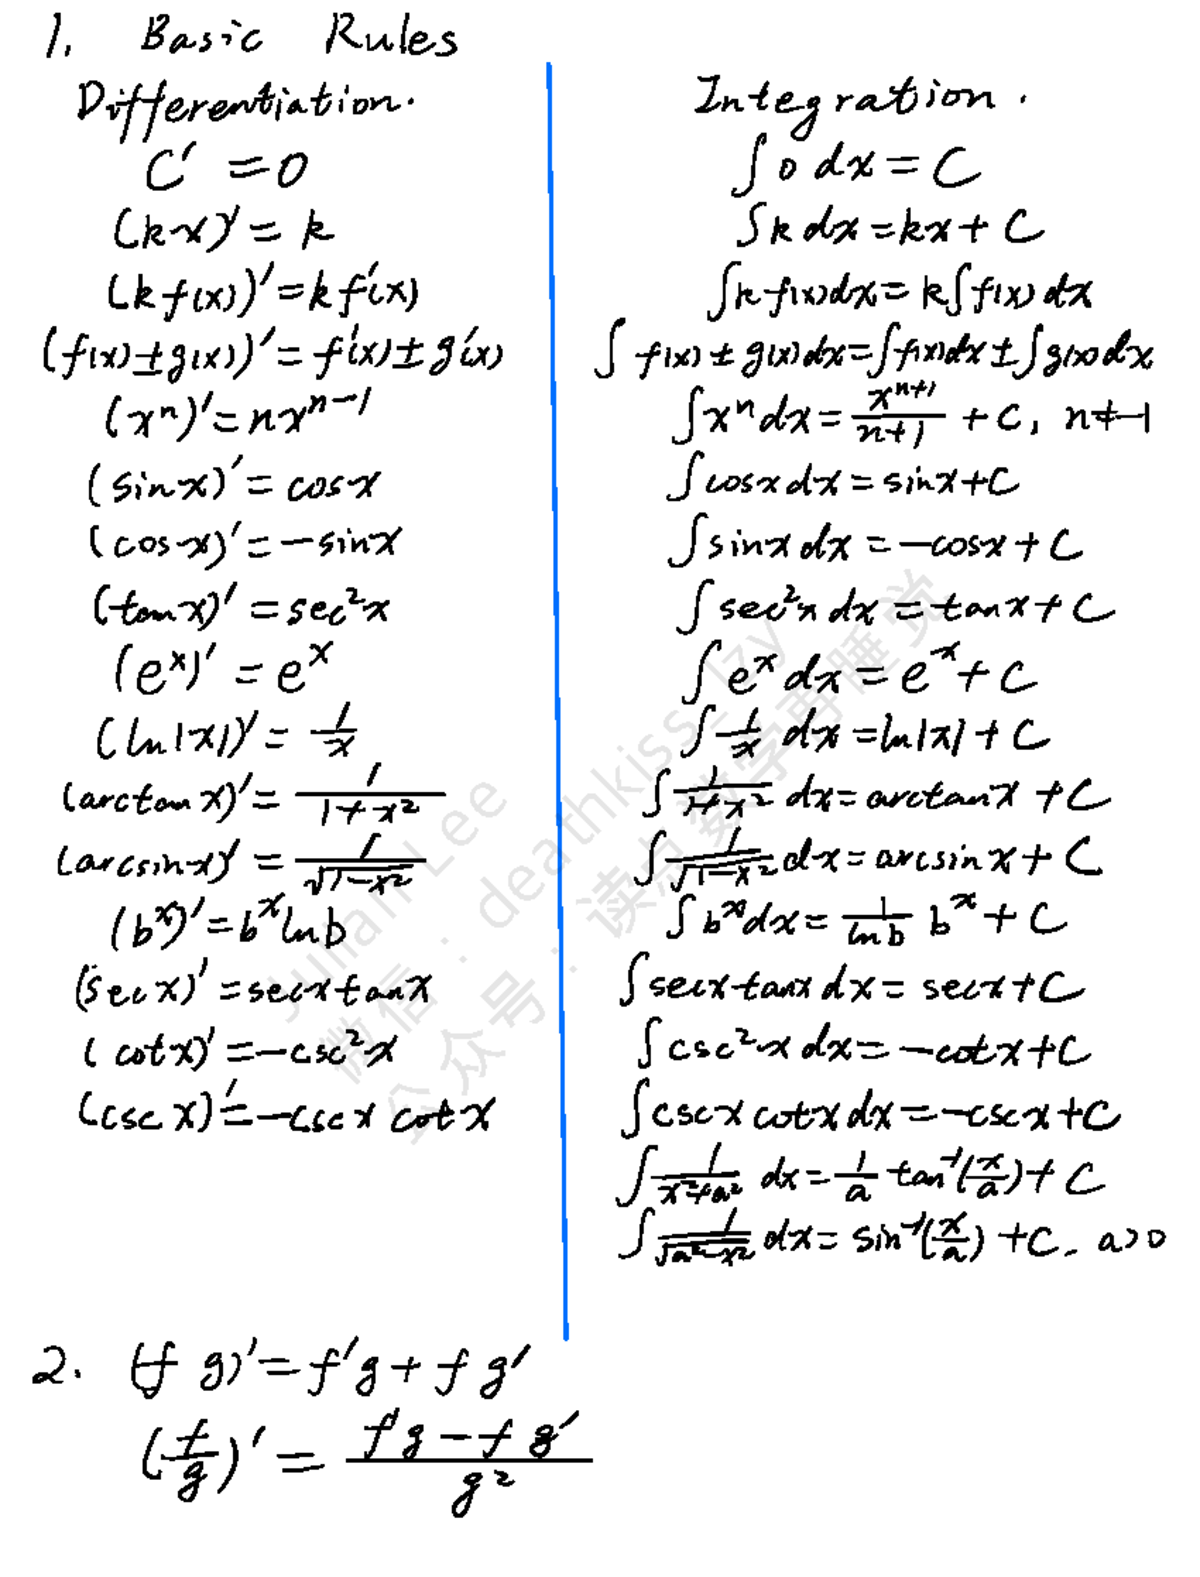 1. Basic Rules
Differentiation.
C' = 0
(kx)' = k
(kf(x))' = kf'(x)
(f(x)±g(x))' = f'(x)±g'(x)
(xⁿ)' = nxⁿ⁻¹
(sinx)' = cosx
(cosx)' = -sinx
(tanx)' = sec²x
(eˣ)' = eˣ
(ln|x|)' = 1/x
(arctanx)' = 1/(1+x²)
(arcsinx)' = 1/√(1-x²)
(bˣ)' = bˣlnb
(secx)' = secxtanx
(cotx)' = -csc²x
(cscx)' = -cscx cotx
Integration.
∫0dx = C
∫kdx = kx+C
∫kf(x)dx = k∫f(x)dx
∫f(x)±g(x)dx = ∫f(x)dx±∫g(x)dx
∫xⁿdx = xⁿ⁺¹/(n+1) + C, n≠-1
∫cosxdx = sinx+C
∫sinxdx = -cosx+C
∫sec²x dx = tanx+C
∫eˣdx = eˣ+C
∫1/x dx = ln|x|+C
∫1/(1+x²) dx = arctanx+C
∫1/√(1-x²) dx = arcsinx+C
∫bˣdx = 1/lnb bˣ+C
∫secxtanxdx = secx+C
∫csc²xdx = -cotx+C
∫cscxcotxdx = -cscx+C
∫1/(x²+a²) dx = 1/a tan⁻¹(x/a)+C
∫1/√(a²-x²) dx = sin⁻¹(x/a)+C. a>0
2. (f g)' = f'g + f g'
(f/g)' = (f'g - f g')/g²
Julian Lee
微信：deathkiss_lzy
公众号：读点数学再睡觉